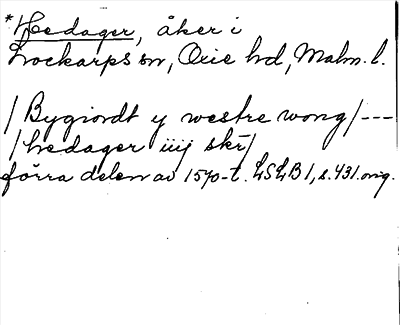 *Hedager, åker i
Lockarps sn, Oxie hd, Malm. l.
/Bygiordt y westre wong/---
/hedager iiij skr/
förra delen av 1570-t. LSLB1, s. 431. orig.